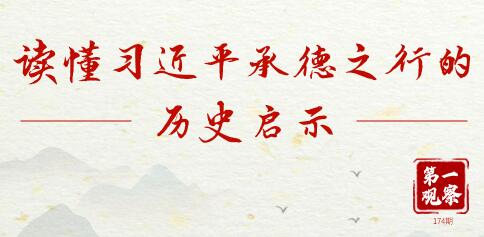 读懂习近平承德之行的
历史启示
第一
观察
174期